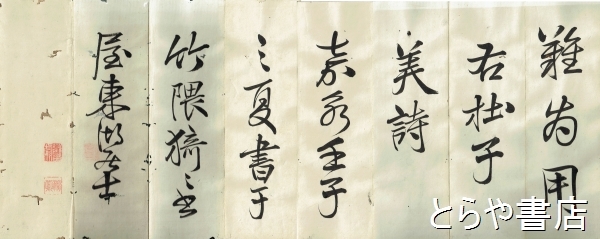 難為用
右杜子
美詩
嘉永壬子
之夏書于
竹隈猗
屋東湖
とらや書店